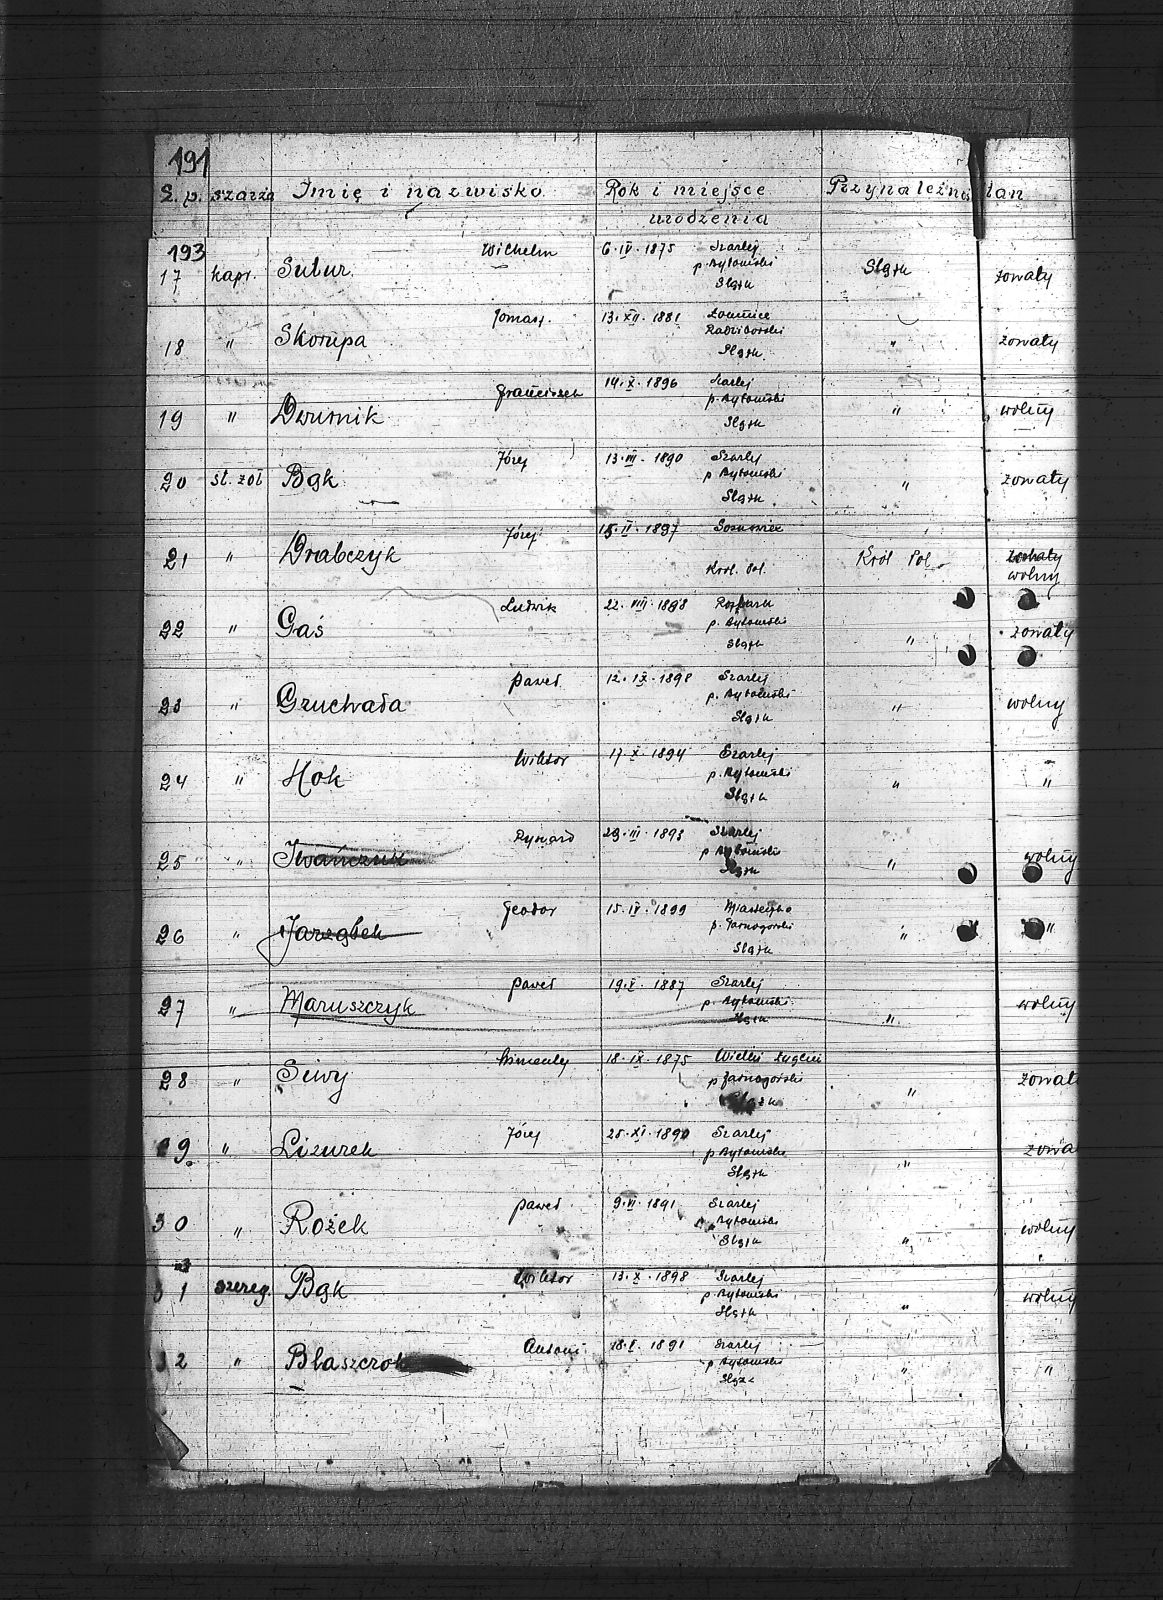 191
L. p. szarża Imię i nazwisko Rok i miejsce urodzenia Przynależność stan
193
17 kapr. Sutur Wilhelm 6·IV·1875 Szarlej
p. Bytomski
Śląsk Śląsk żonaty
18 " Skorupa Tomasz 13·XII·1881
Raciborski
Śląsk " żonaty
19 " Dzurnik Franciszek 14·X·1896 Szarlej
p. Bytomski
Śląsk " wolny
20 st. żoł Bąk Józef 13·III·1890 Szarlej
p Bytomski
Śląsk " żonaty
21 " Drabczyk Józef 15·II·1897 Sosnowiec
Król. Pol. Król Pol. żonaty
wolny
22 " Gaś Ludwik 22·VIII·1898
p. Bytomski
Śląsk " żonaty
23 " Gruchała Paweł 12·IX·1898 Szarlej
p. Bytomski
Śląsk " wolny
24 " Hok Wiktor 17·X·1894 Szarlej
p. Bytomski
Śląsk " "
25 " Iwańczuk Rynard 29·III·1893 Szarlej
p Bytomski
Śląsk " wolny
26 " Jarząbek Teodor 15·IV·1899 Miasteczko
p. Tarnogórski
Śląsk " "
27 " Maruszczyk Paweł 19·X·1887 Szarlej
p. Bytomski
Śląsk " wolny
28 " Siwy 18·IX·1875 Wielki
p Tarnogórski
Śląsk " żonat
29 " Lizurek Józef 25·XI·1890 Szarlej
p Bytomski
Śląsk " żona
30 " Rożek Paweł 9·VI·1891 Szarlej
p. Bytomski
Śląsk " wolny
31 szereg. Bąk Wiktor 13·X·1898 Szarlej
p. Bytomski
Śląsk " wolny
32 " Błaszczok Antoni 18·I·1891 Szarlej
p Bytomski
Śląsk " "